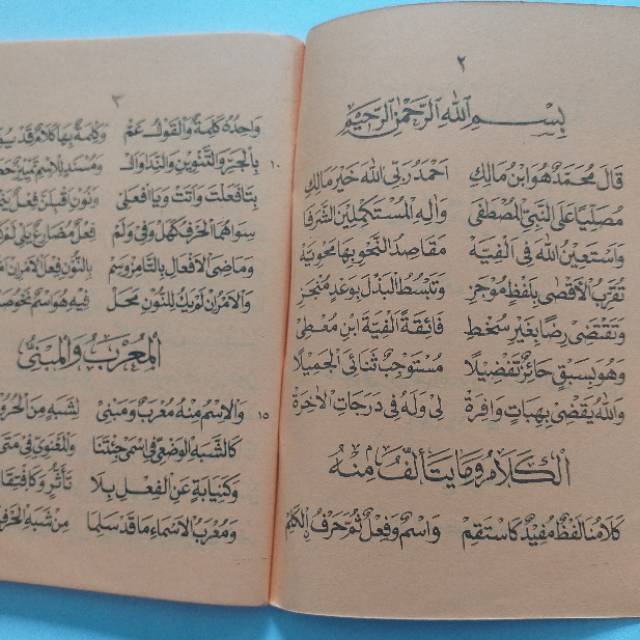 ٢
بِسْمِ اللهِ الرَّحْمٰنِ الرَّحِيْمِ
قَالَ مُحَمَّدٌ هُوَ ابْنُ مَالِكِ اَحْمَدُ رَبِّى اللهَ خَيْرَ مَالِكِ
مُصَلِّيًا عَلَى النَّبِيِّ الْمُصْطَفٰى وَاٰلِهِ الْمُسْتَكْمِلِيْنَ الشَّرَفَا
وَاَسْتَعِيْنُ اللهَ فِى اَلْفِيَّهْ مَقَاصِدُ النَّحْوِ بِهَا مَحْوِيَّهْ
تُقَرِّبُ الْاَقْصٰى بِلَفْظٍ مُوْجَزِ وَتَبْسُطُ الْبَذْلَ بِوَعْدٍ مُنْجَزِ
وَتَقْتَضِى رِضًا بِغَيْرِ سُخْطِ فَائِقَةً اَلْفِيَّةَ ابْنِ مُعْطِى
وَهْوَ بِسَبْقٍ حَائِزٌ تَفْضِيْلًا مُسْتَوْجِبٌ ثَنَائِىَ الْجَمِيْلَا
وَاللهُ يَقْضِى بِهِبَاتٍ وَافِرَةْ لِى وَلَهُ فِى دَرَجَاتِ الْاٰخِرَةْ
اَلْكَلَامُ وَمَا يَتَاَلَّفُ مِنْهُ
كَلَامُنَا لَفْظٌ مُفِيْدٌ كَاسْتَقِمْ وَاسْمٌ وَفِعْلٌ ثُمَّ حَرْفٌ اِلْكَلِمْ
٣
وَاحِدُهُ كَلِمَةٌ وَالْقَوْلُ عَمْ وَكِلْمَةٌ بِهَا كَلَامٌ قَدْ
١٠ بِالْجَرِّ وَالتَّنْوِيْنِ وَالنِّدَا وَاَلْ وَمُسْنَدٍ لِلْاِسْمِ تَمْيِيْزٌ
بِتَا فَعَلْتَ وَاَتَتْ وَيَا افْعَلِى وَنُوْنِ اَقْبِلَنَّ فِعْلٌ
سِوَاهُمَا الْحَرْفُ كَهَلْ وَفِى وَلَمْ فِعْلٌ مُضَارِعٌ يَلِى
وَمَاضِىَ الْاَفْعَالِ بِالتَّا مِزْ وَسِمْ بِالنُّوْنِ فِعْلَ الْاَمْرِ اِنْ
وَالْاَمْرُ اِنْ لَمْ يَكُ لِلنُّوْنِ مَحَلْ فِيْهِ هُوَ اسْمٌ نَحْوُ
اَلْمُعْرَبُ وَالْمَبْنِىُّ
١٥ وَالْاِسْمُ مِنْهُ مُعْرَبٌ وَمَبْنِى لِشَبَهٍ مِنَ الْحُرُوْفِ
كَالشَّبَهِ الْوَضْعِيِّ فِى اسْمَىْ جِئْتَنَا وَالْمَعْنَوِيِّ فِى مَتٰى
وَكَنِيَابَةٍ عَنِ الْفِعْلِ بِلَا تَاَثُّرٍ وَكَافْتِقَارٍ
وَمُعْرَبُ الْاَسْمَاءِ مَا قَدْ سَلِمَا مِنْ شَبَهِ الْحَرْفِ